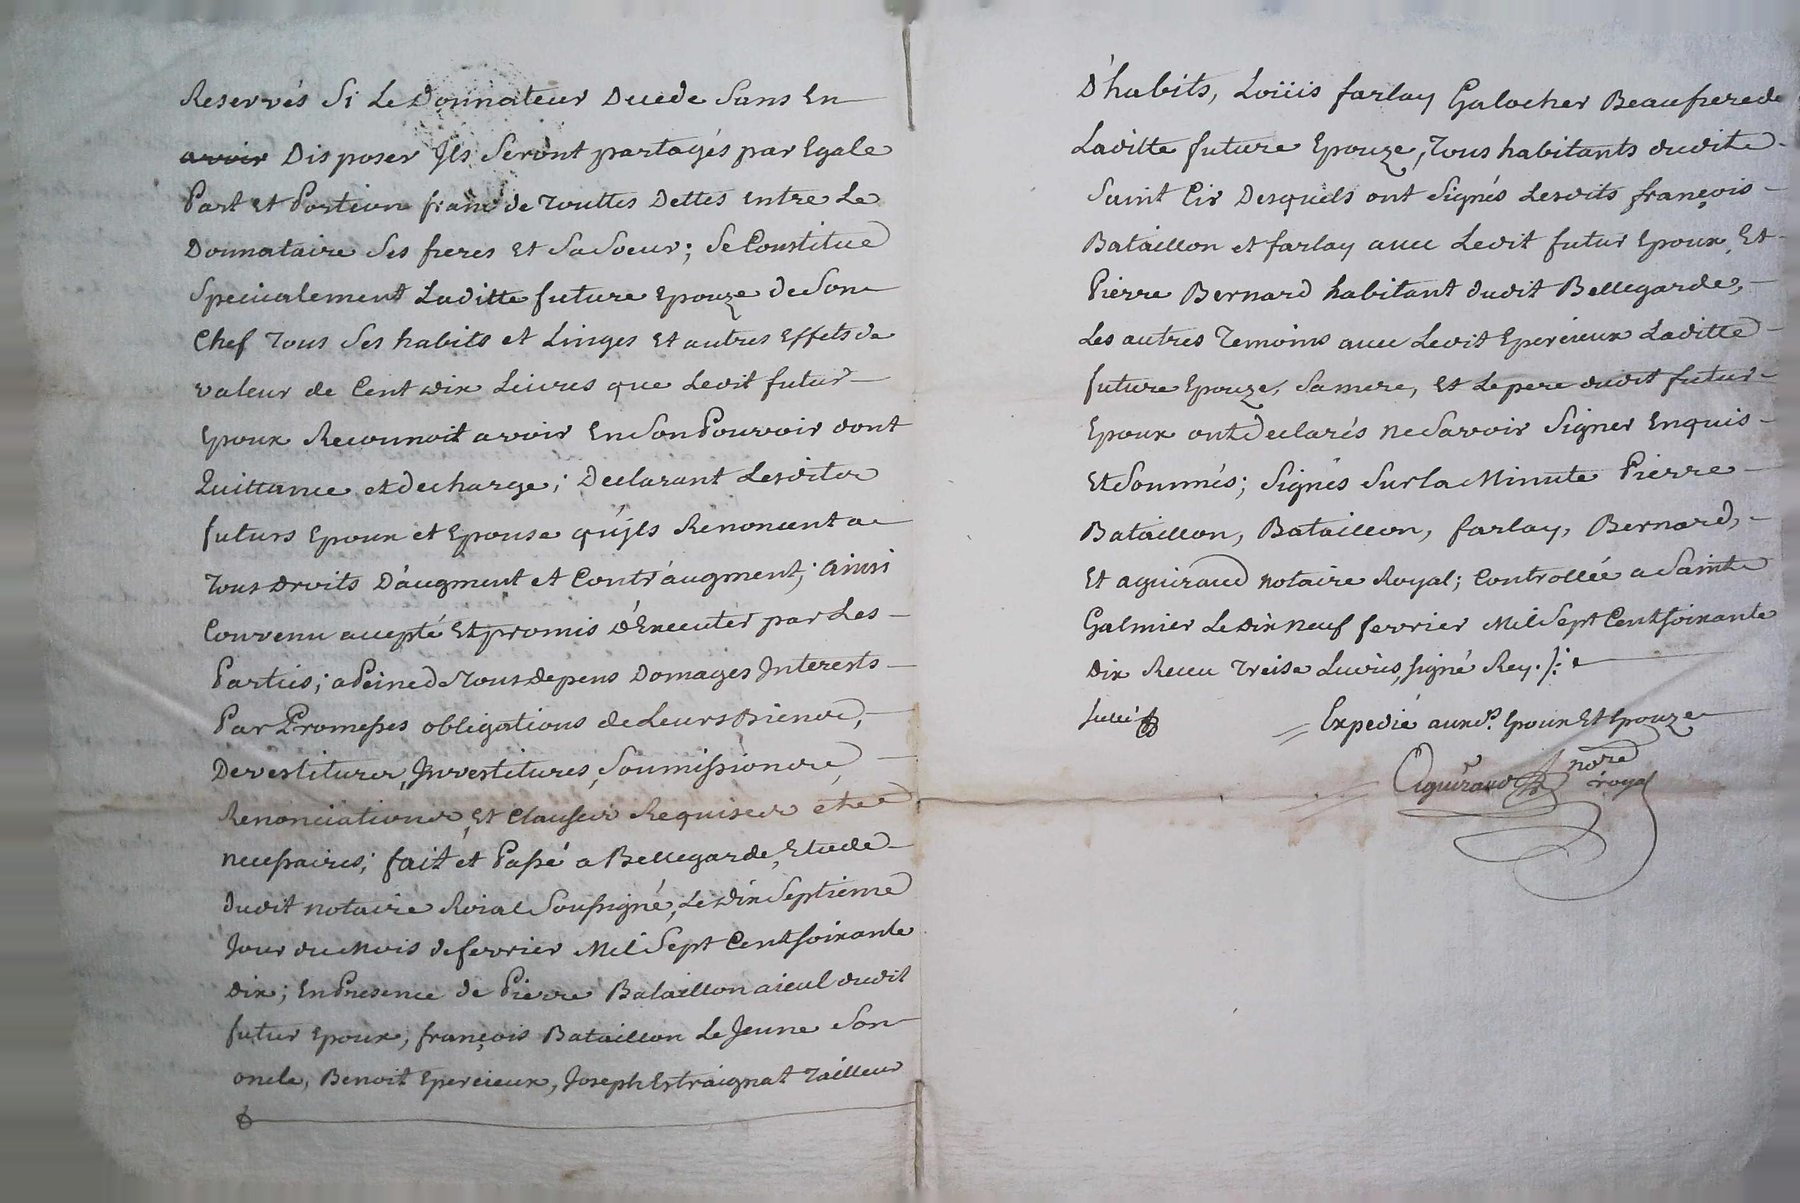 Reservés Si Le Donnateur Decede Sans En
avoir Disposer Jls Seront partagés par Egale
Part et Portion franc de Touttes Dettes entre Le
Donnataire Ses freres et Sa Soeur; Se Constitue
Specicalement Laditte future Epouze de Son
Chef Tous Ses habits et Linges et autres Effets de
valeur de Cent dix Livres que Ledit futur
Epoux Reconnoit avoir En Son Pouvoir dont
Quittance et decharge; Declarant Lesdits
futurs Epoux et Epouse qu'jls Renoncent a
Tous Droits D'augment et Contr'augment; ainsi
Convenu accepté et promis d'Executer par Les
Parties; a Peine de Tous depens Domages Jnterests
Par Promesses obligations de Leurs Biens,
Devestitures, Jnvestitures, Soumissions,
Renonciations, et Clauses Requises et
necessaires; fait et Passé a Bellegarde, Etude
dudit notaire Roial Soussigné, Le Dix Septieme
Jour du Mois de fevrier Mil Sept Cent Soixante
dix; En Presence de Pierre Bataillon aieul dudit
futur Epoux, françois Bataillon Le Jeune Son
oncle, Benoit Epercieux, Joseph Estraignat Tailleur
D'habits, Loüis farlay Galocher Beaufrere de
Laditte future Epouze, Tous habitants dudit
Saint Cir Desquels ont Signés Lesdits françois
Bataillon et farlay avec Ledit futur Epoux, Et
Pierre Bernard habitant dudit Bellegarde,
Les autres Temoins avec Ledit Epercieux Laditte
future Epouze, Sa mere, et Le pere dudit futur
Epoux ont Declarés ne Savoir Signer Enquis
Et Sommés; Signés Sur la Minute Pierre
Bataillon, Bataillon, farlay, Bernard,
Et aguiraud notaire Royal; Controllée a Sainte
Galmier Le Dix neuf fevrier Mil Sept Cent Soixante
Dix Receu Treise Livres, signé Rey.
Scellé Expedié aux d. Epoux Et Epouze
Aguiraud nore
royal